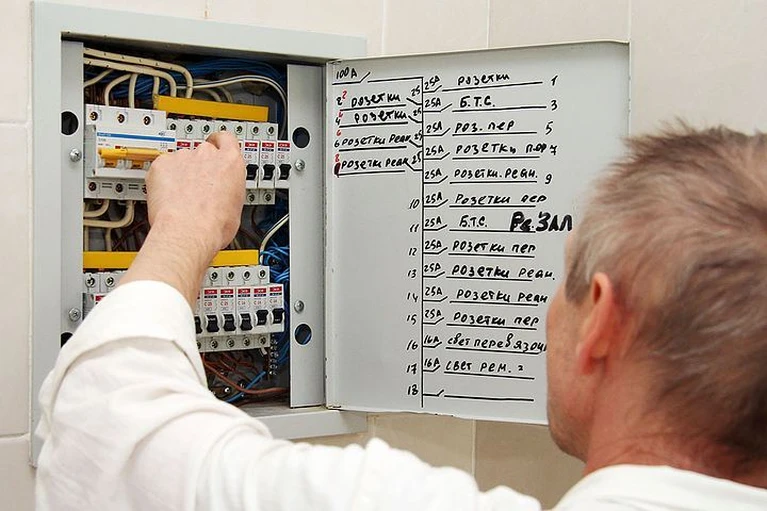 100А
2 2 розетки 25
розетки 25
6 розетки реан 25
8 розетки реан 25
25А розетки 1
25А Б.Т.С. 3
25А роз. пер 5
25А розетки пер 7
25А розетки. реан. 9
10 25А розетки пер
11 25А Б.Т.С. Ре.ЗАЛ
12 25А розетки пер
13 25А розетки реан.
14 25А розетки реан
15 25А розетки пер
16 16А свет перевязочн
17 16А свет рем. 2
18